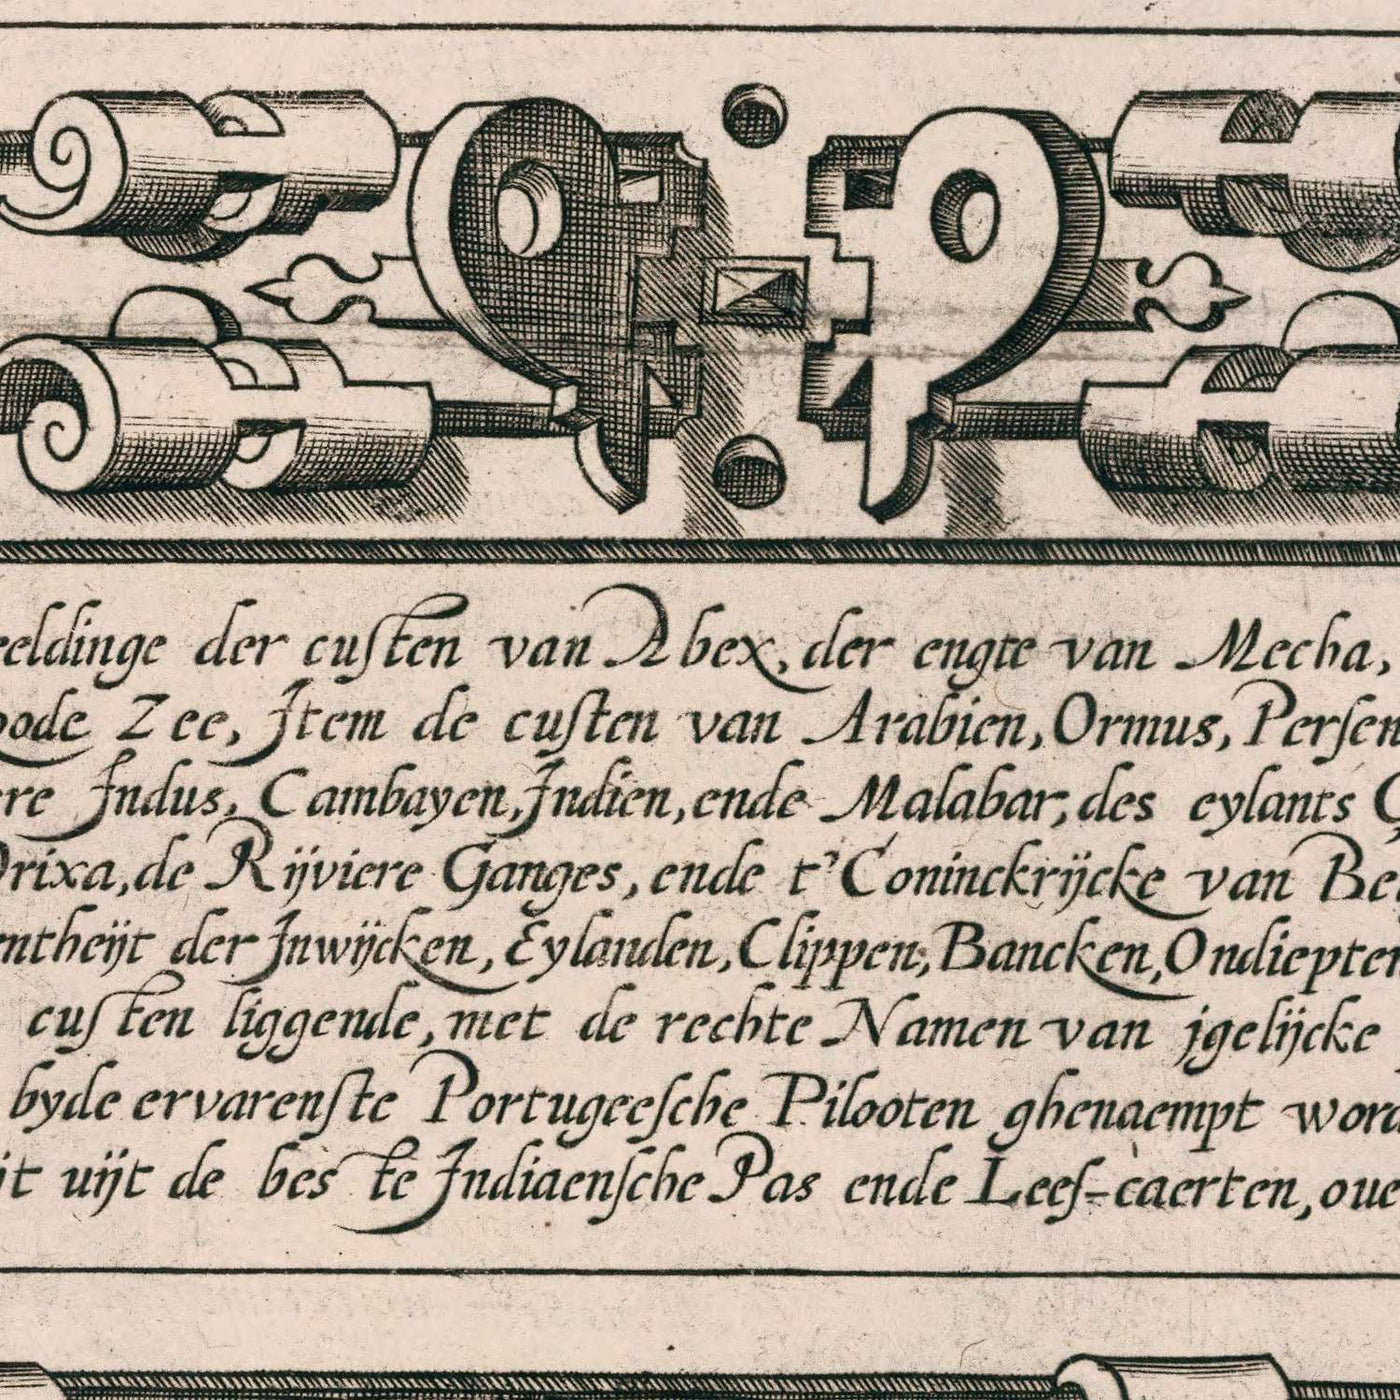 eeldinge der cuſten van Abex, der engte van Mecha,
oode Zee, Item de cuſten van Arabien, Ormus, Perſen
ere Indus, Cambayen, Indien, ende Malabar, des eylants C
Orixa, de Rijviere Ganges, ende t'Coninckrijcke van Be
ntheijt der Inwijcken, Eylanden, Clippen, Bancken, Ondiepten
cuſten liggende, met de rechte Namen van jgelijcke
byde ervarenſte Portugeeſche Pilooten ghenaempt word
it uijt de beste Indiaenſche Pas ende Leeſ-caerten, oue